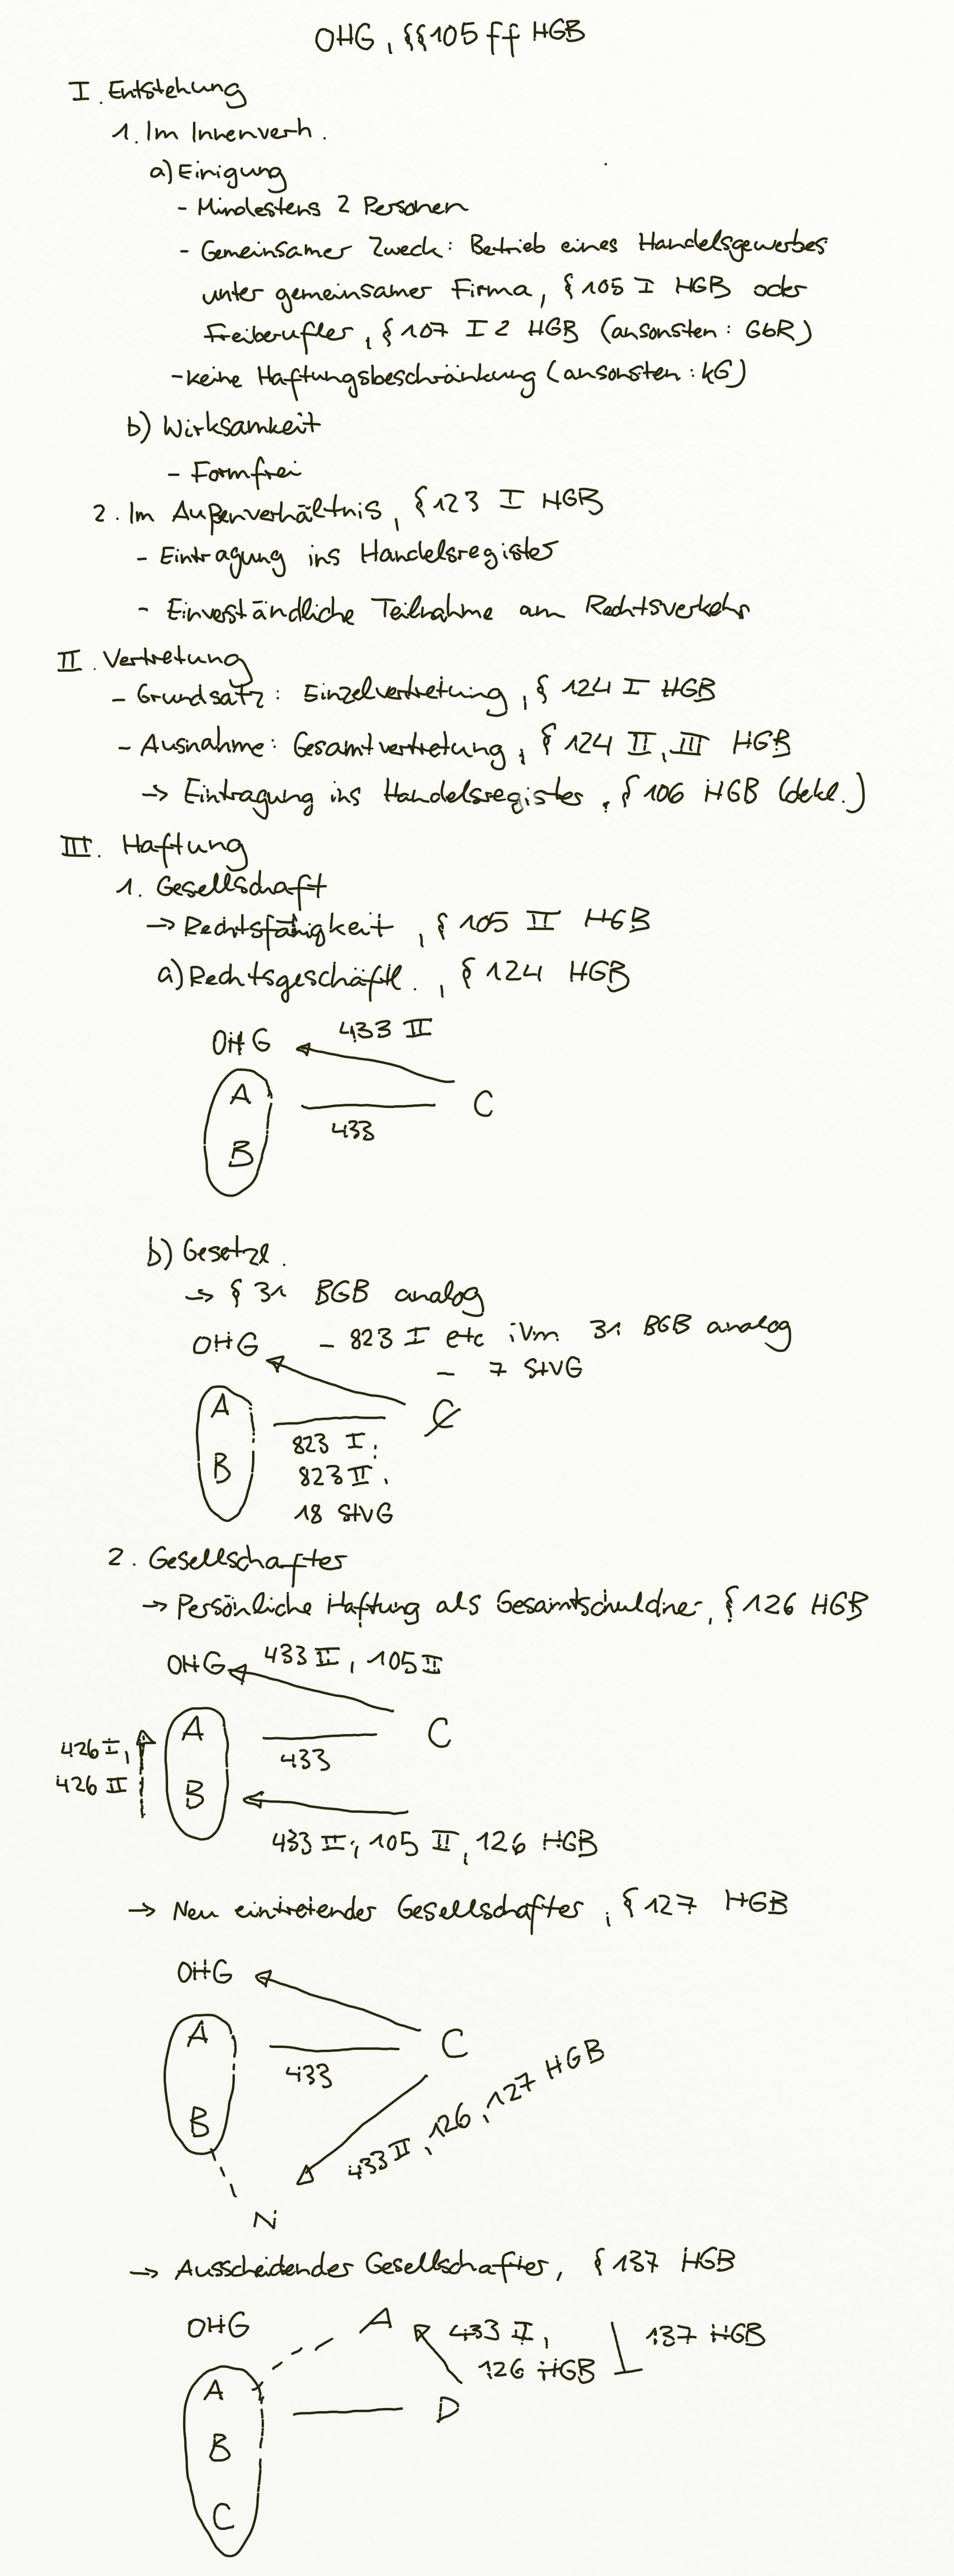 OHG, §§105 ff HGB
I. Entstehung
1. Im Innenverh.
a) Einigung
- Mindestens 2 Personen
- Gemeinsamer Zweck: Betrieb eines Handelsgewerbes
unter gemeinsamer Firma, § 105 I HGB oder
Freiberufler, § 107 I 2 HGB (ansonsten: GbR)
- keine Haftungsbeschränkung (ansonsten: KG)
b) Wirksamkeit
- Formfrei
2. Im Außenverhältnis, § 123 I HGB
- Eintragung ins Handelsregister
- Einverständliche Teilnahme am Rechtsverkehr
II. Vertretung
- Grundsatz: Einzelvertretung, § 124 I HGB
- Ausnahme: Gesamtvertretung, § 124 II, III HGB
→ Eintragung ins Handelsregister, § 106 HGB (dekl.)
III. Haftung
1. Gesellschaft
→ Rechtsfähigkeit, § 105 II HGB
a) Rechtsgeschäftl., § 124 HGB
433 II
OHG
A
C
433
B
b) Gesetzl.
→ § 31 BGB analog
OHG - 823 I etc iVm 31 BGB analog
- 7 StVG
A
C
823 I,
B
823 II,
18 StVG
2. Gesellschafter
→ Persönliche Haftung als Gesamtschuldner, § 126 HGB
OHG 433 II, 105 II
A
C
426 I,
433
426 II
B
433 II, 105 II, 126 HGB
→ Neu eintretender Gesellschafter, § 127 HGB
OHG
A
C
433
433 II, 126, 127 HGB
B
N
→ Ausscheidender Gesellschafter, § 137 HGB
OHG
A
433 II,
137 HGB
126 HGB
A
D
B
C